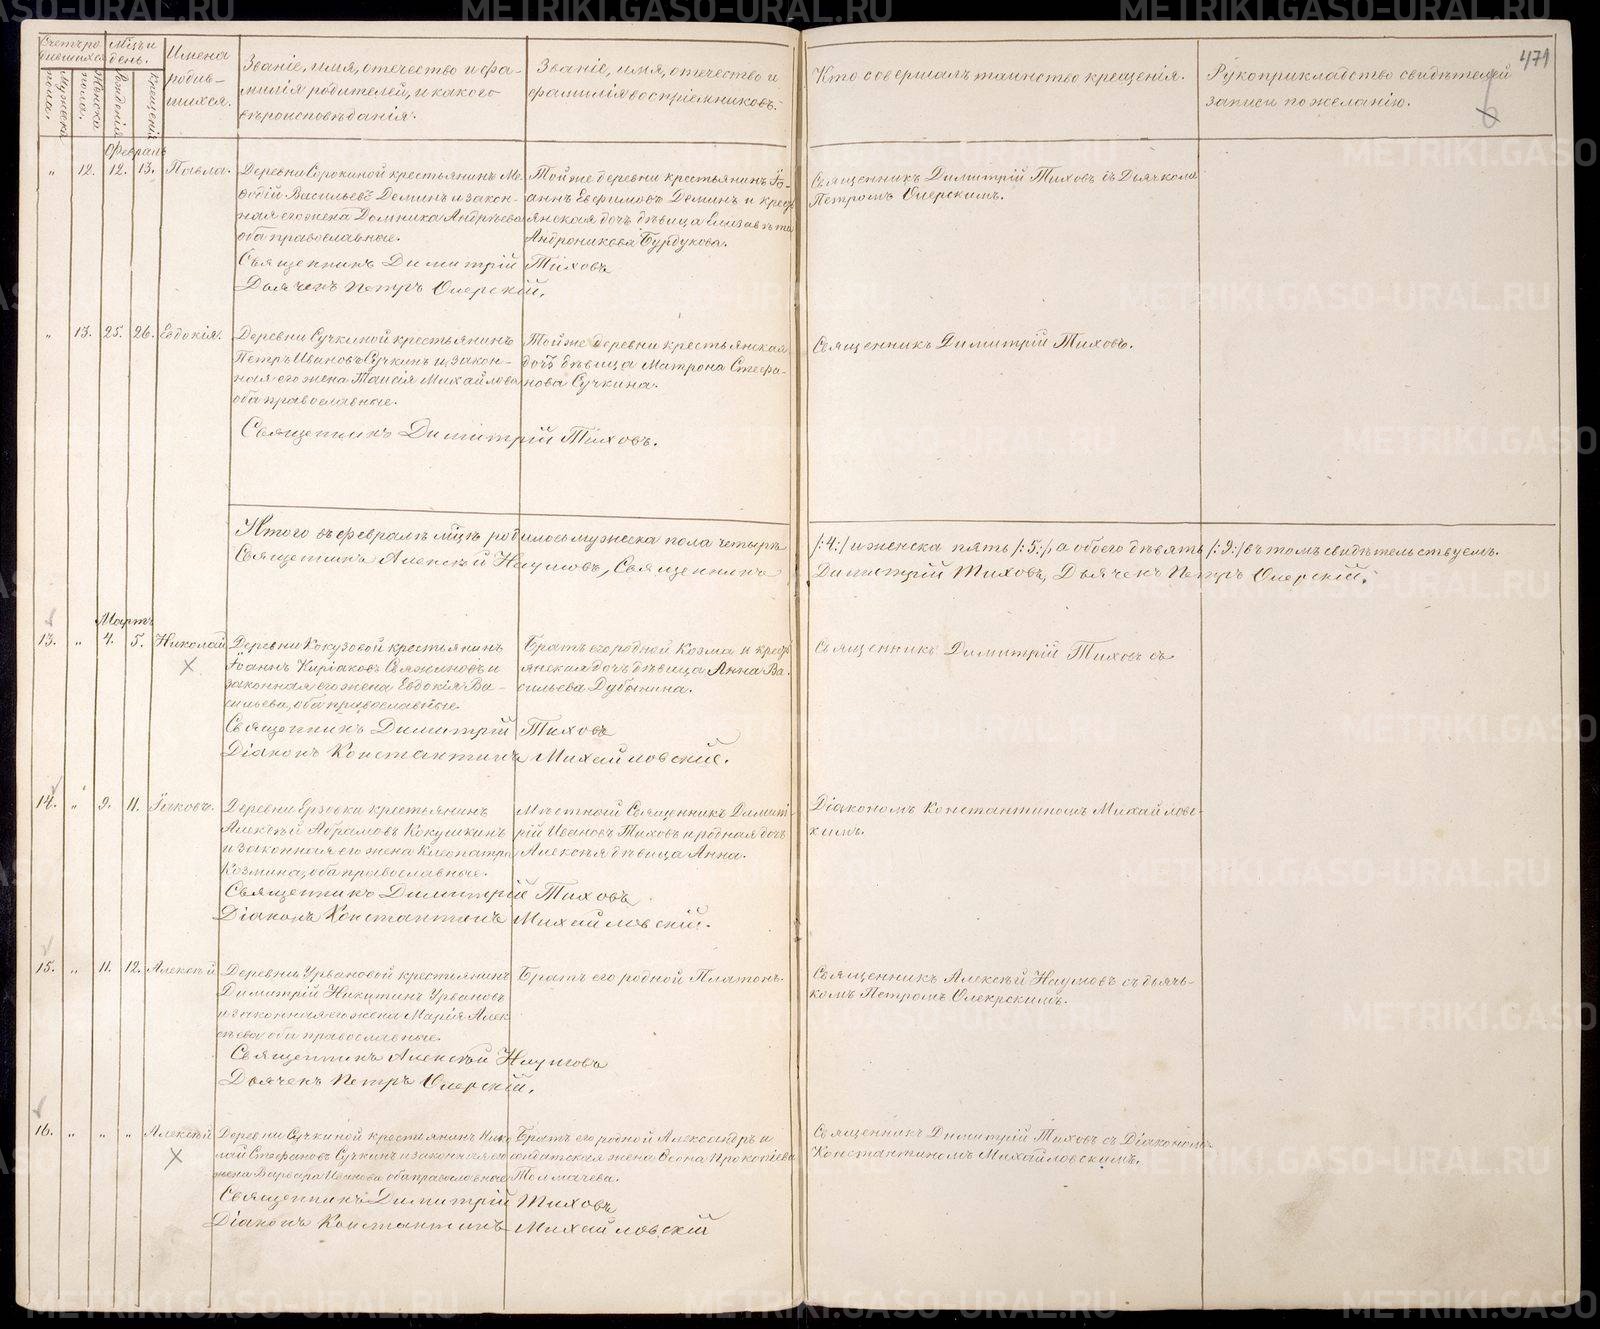 471
Счетъ ро-
дившихся.
Мужеска
пола.
Женска
пола.
Мѣсяцъ и
день.
Рожденія
Крещенія
Имена
родив-
шихся.
Званіе, имя, отечество и фа-
милія родителей, и какого
вѣроисповѣданія.
Званіе, имя, отечество и
фамилія воспріемниковъ.
Кто совершалъ таинство крещенія.
Рукоприкладство свидѣтелей
записи по желанію.
Февраль
" 12. 12. 13.
Деревни Сорокиной крестьянинъ Ме-
фодій Васильевъ Деминъ и закон-
ная его жена Домника Андрѣева
оба православные.
Той же деревни крестьянинъ Іо-
аннъ Евфимовъ Деминъ и кресть-
янская дочь дѣвица Елизавета
Андроникова Бурдукова.
Священникъ Димитрій Тиховъ
Дьячекъ Петръ Олерскій.
Священникъ Димитрій Тиховъ съ Дьячкомъ
Петромъ Олерскимъ.
" 13. 25. 26. Евдокія.
Деревни Сучкиной крестьянинъ
Петръ Ивановъ Сучкинъ и закон-
ная его жена Таисія Михайлова
оба православные.
Той же деревни крестьянская
дочь дѣвица Матрона Стефа-
нова Сучкина.
Священникъ Димитрій Тиховъ.
Священникъ Димитрій Тиховъ.
Итого въ февралѣ мцѣ родилось мужеска пола четыре /:4:/ и женска пять /:5:/, а обоего девять /:9:/ въ томъ свидѣтельствуемъ.
Священникъ Алексѣй Наумовъ, Священникъ Димитрій Тиховъ, Дьячекъ Петръ Олерскій.
Мартъ
13. " 4. 5. Николай
Деревни Кокузовой крестьянинъ
Іоаннъ Киріаковъ и
законная его жена Евдокія Ва-
сильева, оба православные.
Братъ его родной Козма и кресть-
янская дочь дѣвица Анна Ва-
сильева Дубынина.
Священникъ Димитрій Тиховъ
Діаконъ Константинъ Михайловскій.
Священникъ Димитрій Тиховъ съ
14. " 9. 11. Іаковъ.
Деревни Ерзовки крестьянинъ
Алексѣй Абрамовъ Кокушкинъ
и законная его жена Клеопатра
Козмина, оба православные.
Мѣстной Священникъ Димит-
рій Ивановъ Тиховъ и родная дочь
Алексѣя дѣвица Анна.
Священникъ Димитрій Тиховъ
Діаконъ Константинъ Михайловскій.
Діакономъ Константиномъ Михайловс-
кимъ.
15. " 11. 12. Алексѣй
Деревни Урвановой крестьянинъ
Димитрій Никитинъ Урвановъ
и законная его жена Марія Алек-
сѣева оба православные.
Братъ его родной Платонъ.
Священникъ Алексѣй Наумовъ
Дьячекъ Петръ Олерскій.
Священникъ Алексѣй Наумовъ съ дьяч-
комъ Петромъ Олерскимъ.
16. " " " Алексѣй
Деревни Сучкиной крестьянинъ Нико-
лай Стефановъ Сучкинъ и законная его
жена Варвара Иванова оба православные
Братъ его родной Александръ и
солдатская жена Прокопіева
Толмачева.
Священникъ Димитрій Тиховъ
Діаконъ Константинъ Михайловскій
Священникъ Димитрій Тиховъ съ Діакономъ
Константиномъ Михайловскимъ.
METRIKI.GASO-URAL.RU